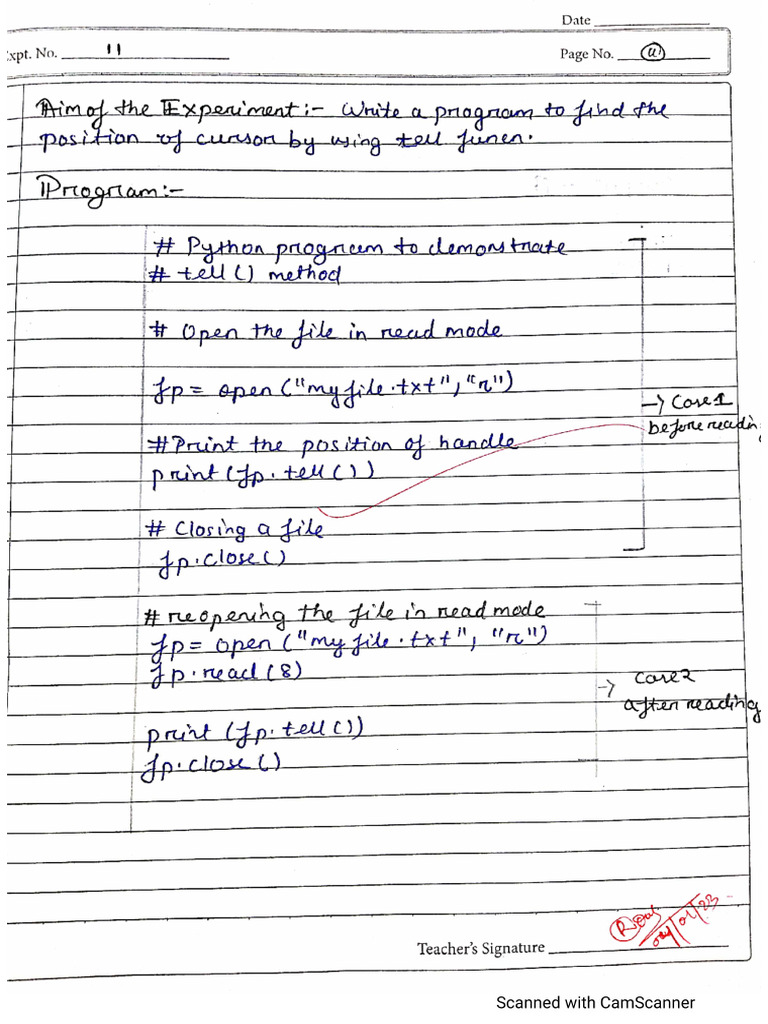 Date
Expt. No. 11
Page No.
Aim of the Experiment:- Write a program to find the
position of cursor by using tell funcn.
Program:-
# Python program to demonstrate
# tell() method
# Open the file in read mode
fp = open ("myfile.txt", "r")
→ Case 1
before readin
#Print the position of handle
print (fp. tell ())
# Closing a file
fp.close()
# reopening the file in read mode
fp = open ("myfile.txt", "r")
fp.read (8)
→ Case 2
after reading
print (fp. tell ())
fp.close ()
Teacher's Signature
Scanned with CamScanner